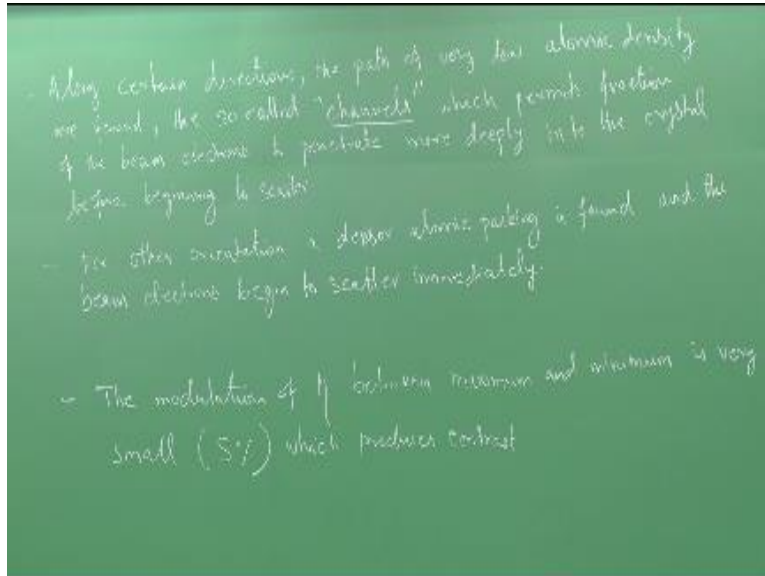 - Along certain directions, the path of very low atomic density
are found, the so called "channels" which permit fraction
of the beam electrons to penetrate more deeply in to the crystal
before begining to scatter
- For other orientation a denser atomic packing is found and the
beam electrons begin to scatter immediately.
- The modulation of η between maximum and minimum is very
small (5%) which produces contrast